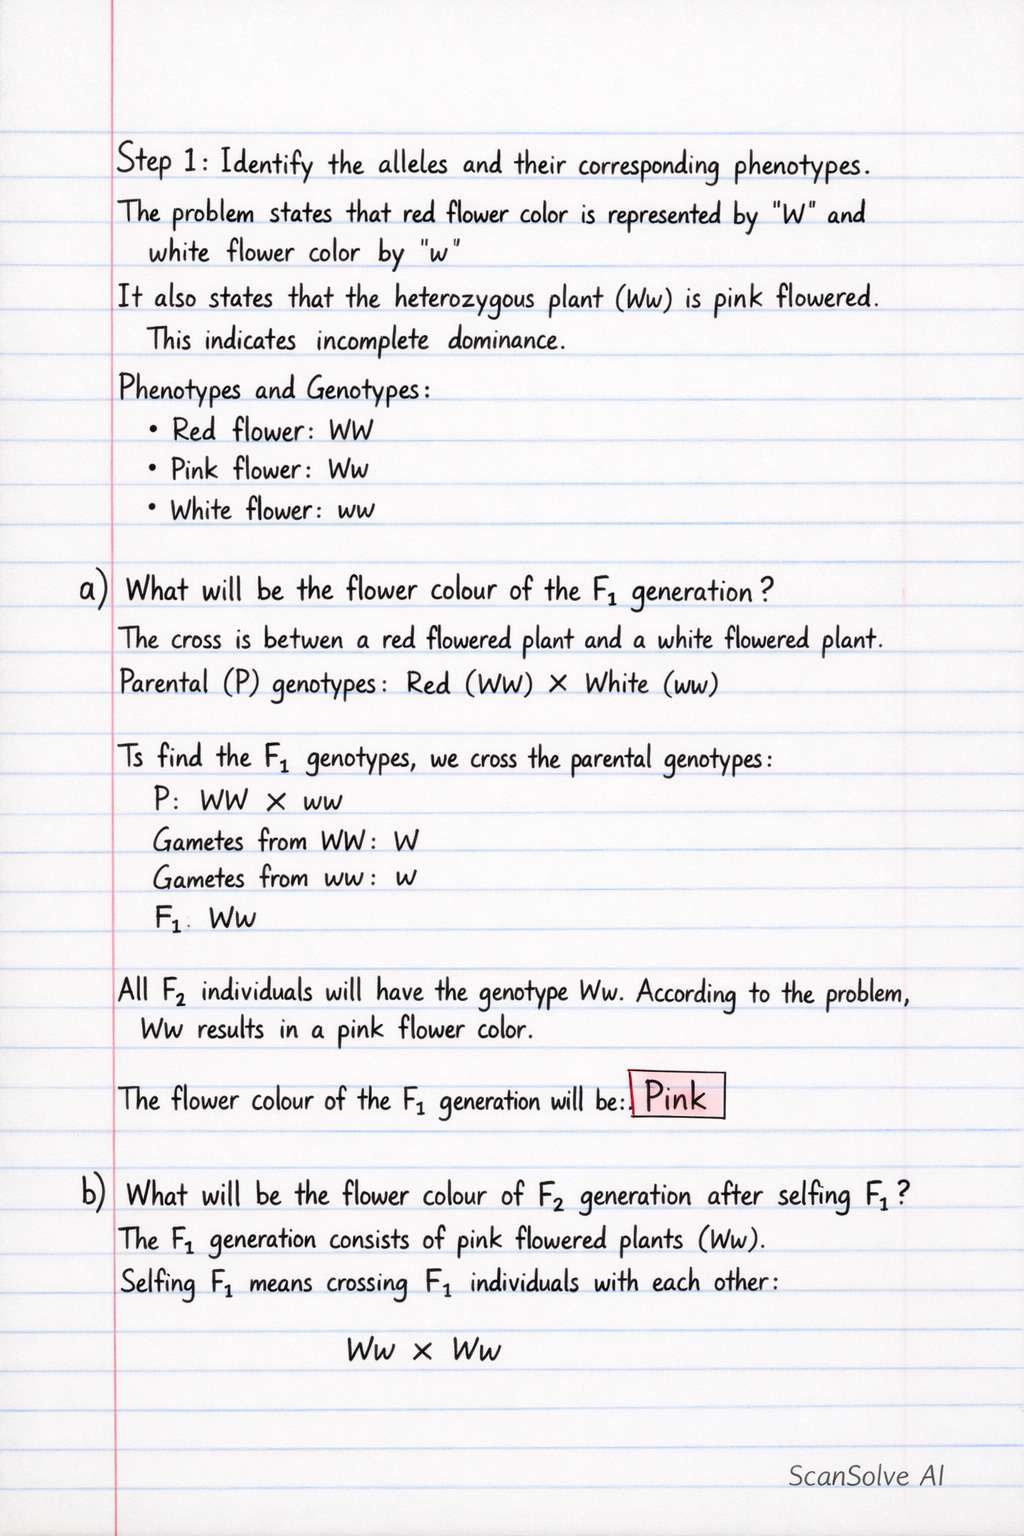 Step 1: Identify the alleles and their corresponding phenotypes.
The problem states that red flower color is represented by "W" and
white flower color by "w"
It also states that the heterozygous plant (Ww) is pink flowered.
This indicates incomplete dominance.
Phenotypes and Genotypes:
• Red flower: WW
• Pink flower: Ww
• White flower: ww
a) What will be the flower colour of the F₁ generation?
The cross is betwen a red flowered plant and a white flowered plant.
Parental (P) genotypes: Red (WW) × White (ww)
Ts find the F₁ genotypes, we cross the parental genotypes:
P: WW × ww
Gametes from WW: W
Gametes from ww: w
F₁. Ww
All F₂ individuals will have the genotype Ww. According to the problem,
Ww results in a pink flower color.
The flower colour of the F₁ generation will be:. Pink
b) What will be the flower colour of F₂ generation after selfing F₁?
The F₁ generation consists of pink flowered plants (Ww).
Selfing F₁ means crossing F₁ individuals with each other:
Ww × Ww
ScanSolve AI